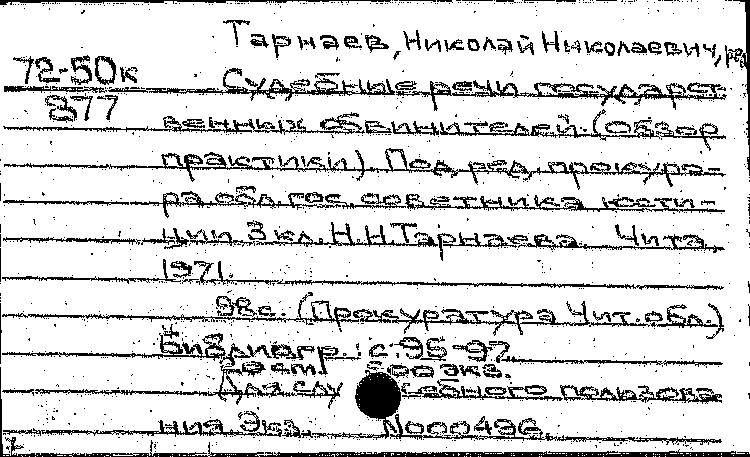 Тарнаев, Николай Николаевич, ред.
72-50к
877
Судебные речи государст-
венных обвинителей. (Обзор
практики). Под ред. прокуро-
ра обл. гос. советника юсти-
ции 3 кл. Н.Н.Тарнаева. Чита,
1971.
98с. (Прокуратура Чит.обл.)
Библиогр.: с.95-97.
20 см. 500 экз.
Для служебного пользова
ния Экз. №000496.